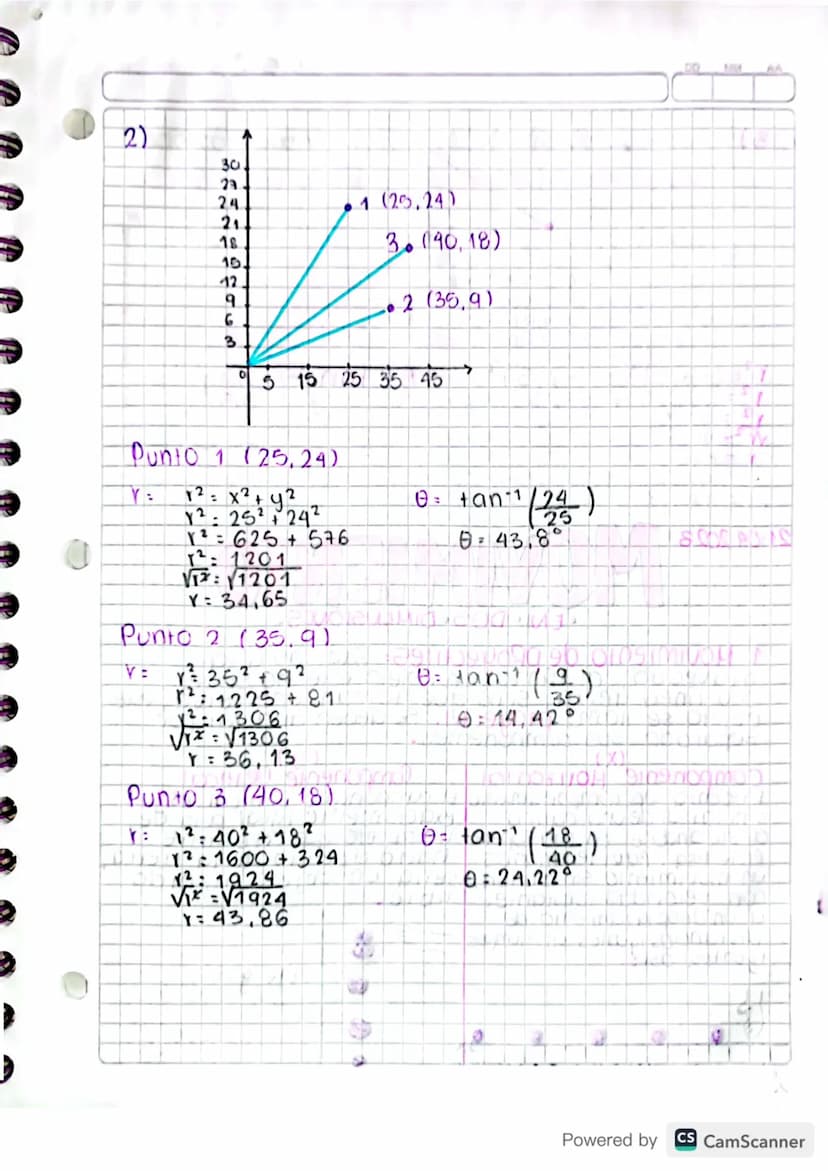 DD MM AA
2)
30
27
24
21
18
15
12
9
6
3
1 (25,24)
3 (40,18)
2 (35,9)
0 5 15 25 35 45
Punto 1 (25,24)
r: r² = x² + y²
r² = 25² + 24²
r² = 625 + 576
r² = 1201
√r² = √1201
r = 34,65
θ = tan⁻¹ (24/25)
θ = 43,8°
Punto 2 (35,9)
r = r² = 35² + 9²
r² = 1225 + 81
r² = 1306
√r² = √1306
r = 36,13
θ = tan⁻¹ (9/35)
θ = 14,42°
Punto 3 (40,18)
r: r² = 40² + 18²
r² = 1600 + 324
r² = 1924
√r² = √1924
r = 43,86
θ = tan⁻¹ (18/40)
θ = 24,22°
Powered by CS CamScanner